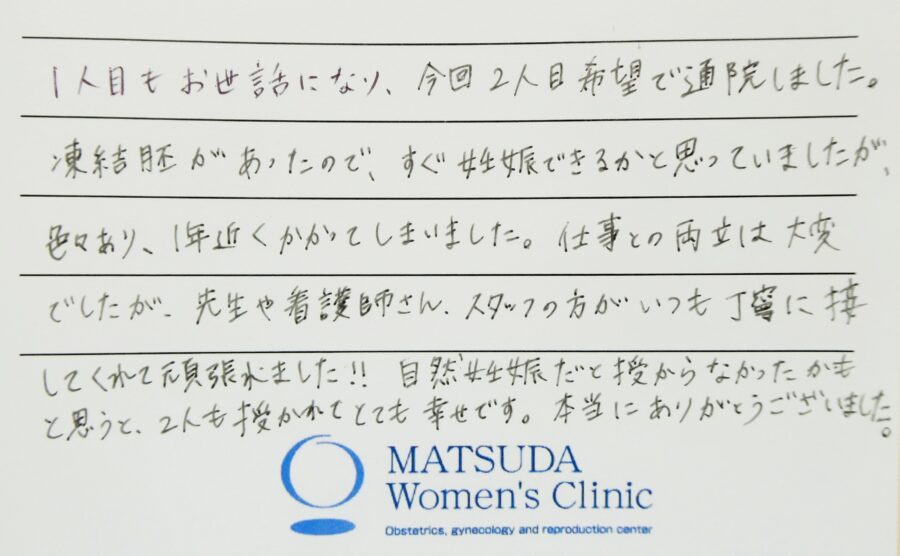 1人目もお世話になり、今回2人目希望で通院しました。
凍結胚があったので、すぐ妊娠できるかと思っていましたが、
色々あり、1年近くかかってしまいました。仕事との両立は大変
でしたが、先生や看護師さん、スタッフの方がいつも丁寧に接
してくれて頑張れました!! 自然妊娠だと授からなかったかも
と思うと、2人も授かれてとても幸せです。本当にありがとうございました。
MATSUDA
Women's Clinic
Obstetrics, gynecology and reproduction center